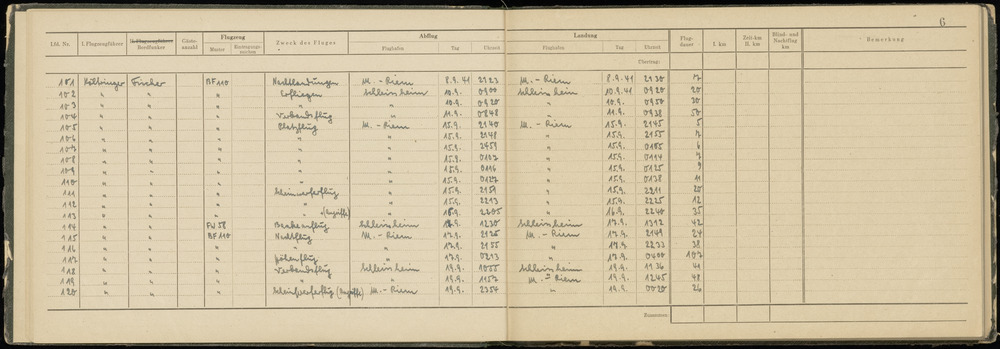 6
Lfd. Nr. I. Flugzeugführer II. Flugzeugführer Bordfunker Gäste- anzahl Flugzeug Muster Eintragungs- zeichen Zweck des Fluges Abflug Flughafen Tag Uhrzeit Landung Flughafen Tag Uhrzeit Flug- dauer I. km Zeit-km II. km Blind- und Nachtflug km Bemerkung
Übertrag:
101 Fischer BF 110 Nachtlandungen M. - Riem 8.9.41 2123 M. - Riem 8.9.41 2130 7
102 " " " Schleissheim 10.9. 0900 Schleissheim 10.9.41 0920 20
103 " " " " " 10.9. 0920 " 10.9. 0950 30
104 " " " Verbandsflug " 11.9. 0848 " 11.9. 0938 50
105 " " " Platzflug M. - Riem 15.9. 2140 M. - Riem 15.9. 2145 5
106 " " " " " 15.9. 2148 " 15.9. 2155 7
107 " " " " " 15.9. 2459 " 15.9. 0105 6
108 " " " " " 15.9. 0107 " 15.9. 0114 7
109 " " " " " 15.9. 0116 " 15.9. 0125 9
110 " " " " " 15.9. 0127 " 15.9. 0138 11
111 " " " Scheinwerferflug " 15.9. 2151 " 15.9. 2211 20
112 " " " " " 15.9. 2213 " 15.9. 2225 12
113 " " " " (Angriffe) " 16.9. 2205 " 16.9. 2240 35
114 " " FW 58 Schleissheim 17.9. 1230 Schleissheim 17.9. 1312 42
115 " " BF 110 Nachtflug M. - Riem 17.9. 2125 M. - Riem 17.9. 2149 24
116 " " " " " 17.9. 2155 " 17.9. 2233 38
117 " " " Höhenflug " 17.9. 0213 " 17.9. 0400 107
118 " " " Verbandsflug Schleissheim 19.9. 1055 Schleissheim 19.9. 1136 41
119 " " " " " 19.9. 1157 M. - Riem 19.9. 1245 48
120 " " " Scheinwerferflug (Angriffe) M. - Riem 19.9. 2354 " 19.9. 0020 26
Zusammen: